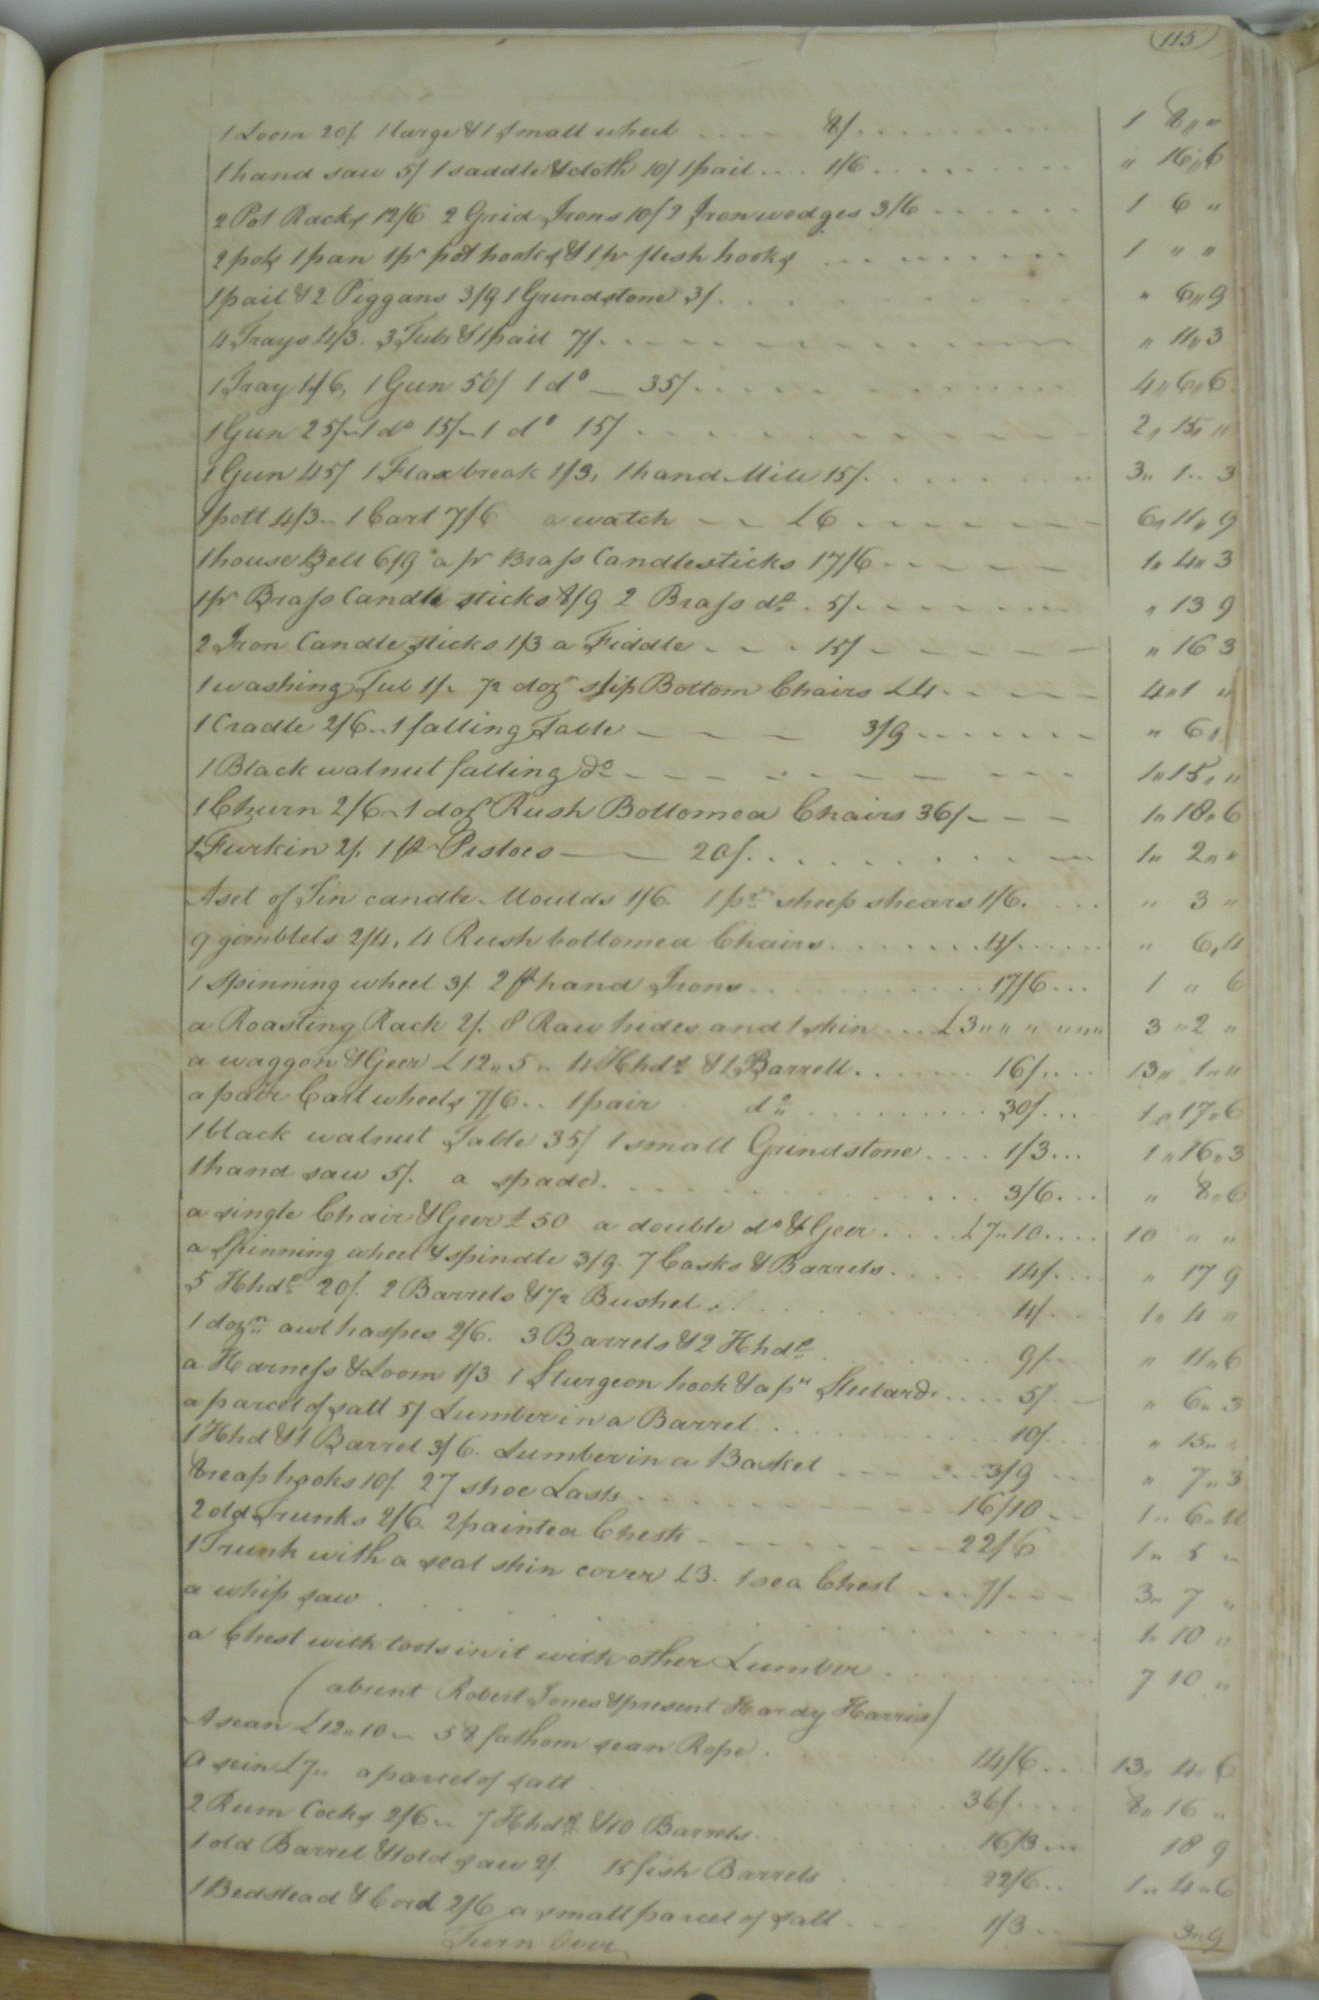 115
1 Loom 20/. 1 large & 1 small wheel .... 8/. ....... 1 8 „ „
1 hand saw 5/ 1 saddle & cloth 10/ 1 pail .... 1/6 ....... „ 16 „ 6
2 Pot Racks 12/6 2 Grid Irons 10/ 2 Iron wedges 3/6 ...... 1 6 „
2 pots 1 pan 1 pr pot hooks & 1 pr flesh hooks ....... 1 „ „
1 pail & 2 Piggans 3/9 1 Grindstone 3/. ....... „ 6 „ 9
4 Trays 4/3. 3 Tubs & 1 pail 7/. ....... „ 11 „ 3
1 Tray 1/6, 1 Gun 50/ 1 do — 35/. ....... 4 „ 6 „ 6
1 Gun 25/ 1 do 15/ 1 do 15/ ....... 2 „ 15 „ „
1 Gun 45/ 1 Flax break 1/3, 1 hand Mill 15/. ....... 3 „ 1 .. 3
1 pott 4/3 .. 1 Cart 7/6 a watch — — £6 ....... 6 „ 11 „ 9
1 house Bell 6/9 a pr Brass Candlesticks 17/6 ....... 1 „ 4 „ 3
1 pr Brass Candle sticks 8/9 2 Brass do. 5/. ....... „ 13 9
2 Iron Candle sticks 1/3 a Fiddle .... 15/ ....... „ 16 3
1 washing Tub 1/. ½ dozn slip Bottom Chairs £4 ....... 4 „ 1 „
1 Cradle 2/6 .. 1 falling Table — — — 3/9 ....... „ 6 „
1 Black walnut falling do ....... 1 „ 15 „ „
1 Churn 2/6 1 dozn Rush Bottomed Chairs 36/. — — 1 „ 18 „ 6
1 Furkin 2/. 1 pr Pistols — — 20/. ....... 1 „ 2 „ „
A set of Tin candle Moulds 1/6. 1 pr sheep shears 1/6. .... „ 3 „
9 gimblets 2/4, 4 Rush bottomed Chairs ....... 4/. ...... „ 6 „ 4
1 Spinning wheel 3/. 2 pr hand Irons ....... 17/6 ... 1 „ 6
a Roasting Rack 2/. 8 Raw hides and 1 skin ... £3 „ „ „ „ 3 „ 2 „
a waggon & Geer £12 „ 5 .. 4 Hhds & 1 Barrell ...... 16/. .... 13 „ 1 „ „
a pair Cart wheels 7/6 .. 1 pair do ....... 30/. ... 1 „ 17 „ 6
1 black walnut Table 35/ 1 small Grindstone .... 1/3 ... 1 „ 16 „ 3
1 hand saw 5/. a spade. ....... 3/6 ... „ 8 „ 6
a single Chair & Geer £ 50 a double do & Geer .... £7 „ 10 .... 10 „ „
a Spinning wheel & spindle 3/9. 7 Casks & Barrels ..... 14/. ... „ 17 9
5 Hhds 20/. 2 Barrels & ½ Bushel ....... 4/. ... 1 „ 4 „
1 dozn awl haspes 2/6. 3 Barrels & 2 Hhds ....... 9/ ... „ 11 „ 6
a Harness & Loom 1/3 1 Sturgeon hook & a pr Stilards .... 5/. — „ 6 „ 3
a parcel of salt 5/ Lumber in a Barrel ....... 10/. ... „ 15 „ „
1 Hhd & 1 Barrel 3/6. Lumber in a Basket ....... 3/9 ... „ 7 „ 3
8 reap hooks 10/. 27 shoe Lasts ....... 16/10 ... 1 „ 6 „ 10
2 old Trunks 2/6. 2 painted Chests ....... 22/6 1 „ 5 „
1 Trunk with a seal skin cover £3. 1 sea Chest .... 7/. ... 3 „ 7 „
a whip saw ....... 1 „ 10 „
a Chest with tools in it with other Lumber ....... 7 10 „
(absent Robert Jones & present Hardy Harris)
A sean £12 „ 10 — 58 fathom sean Rope ....... 14/6 ... 13 „ 4 „ 6
A sein £7 „ a parcel of salt ....... 36/. ... 8 „ 16 „
2 Rum Cocks 2/6 .. 7 Hhds & 10 Barrels ....... 16/3 ... 18 9
1 old Barrel & 1 old saw 2/. 15 fish Barrels ....... 22/6 .. 1 „ 4 „ 6
1 Bedstead & Cord 2/6 a small parcel of salt ....... 1/3 ... 3 „ 9
Turn Over